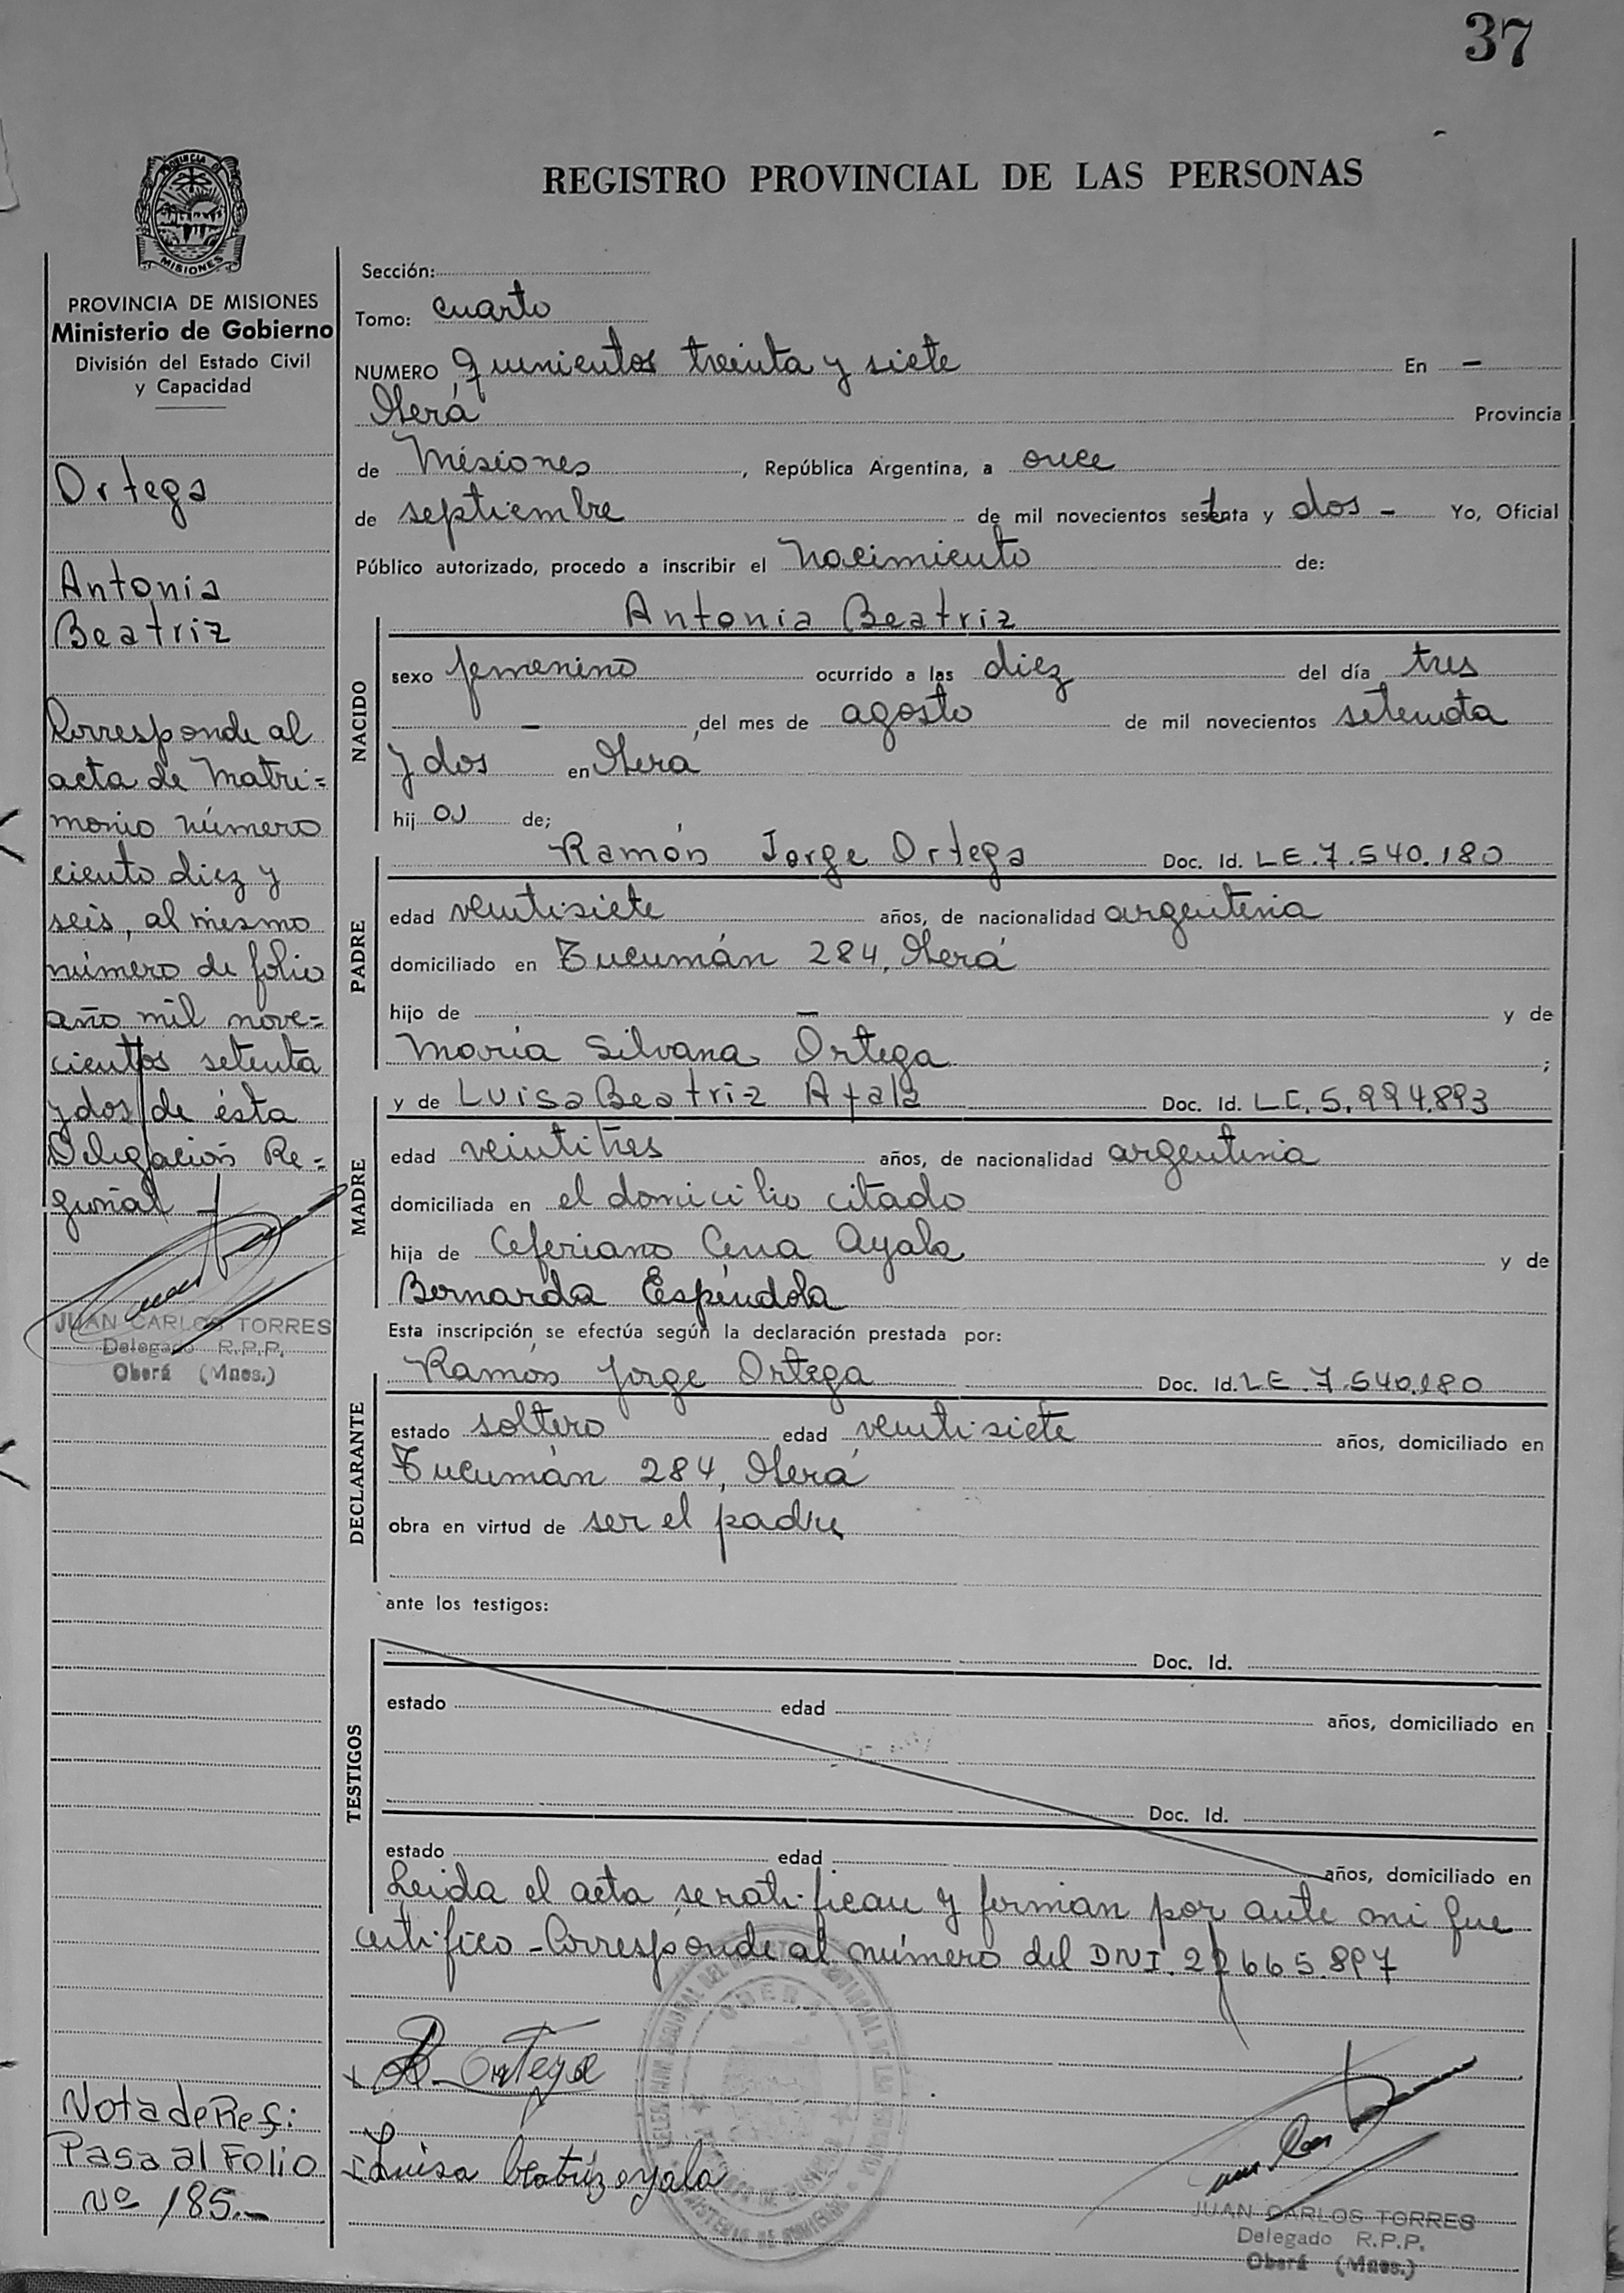 37
REGISTRO PROVINCIAL DE LAS PERSONAS
PROVINCIA DE
MISIONES
PROVINCIA DE MISIONES
Ministerio de Gobierno
División del Estado Civil
y Capacidad
Ortega
Antonia
Beatriz
Corresponde al
acta de Matri=
monio número
ciento diez y
seis, al mismo
número de folio
año mil nove=
cientos setenta
y dos de ésta
Delegación Re=
gional -
JUAN CARLOS TORRES
Delegado R.P.P.
Oberá (Mnes.)
Nota de Ref:
Pasa al Folio
Nº 185.-
Sección:
Tomo: cuarto
NUMERO quinientos treinta y siete En -
Oberá Provincia
de Misiones, República Argentina, a once
de septiembre de mil novecientos setenta y dos - Yo, Oficial
Público autorizado, procedo a inscribir el Nacimiento de:
NACIDO
Antonia Beatriz
sexo femenino ocurrido a las diez del día tres
- del mes de agosto de mil novecientos setenta
y dos en Oberá
hij a de;
PADRE
Ramón Jorge Ortega Doc. Id. L.E. 7.540.180
edad veintisiete años, de nacionalidad argentina
domiciliado en Tucumán 284, Oberá
hijo de - y de
María Silvana Ortega ;
MADRE
y de Luisa Beatriz Ayala Doc. Id. L.C. 5.994.893
edad veintitres años, de nacionalidad argentina
domiciliada en el domicilio citado
hija de Ceferiano Ayala y de
Bernarda Espíndola
Esta inscripción se efectúa según la declaración prestada por:
DECLARANTE
Ramón Jorge Ortega Doc. Id. L.E. 7.540.180
estado soltero edad veintisiete años, domiciliado en
Tucumán 284, Oberá
obra en virtud de ser el padre
ante los testigos:
TESTIGOS
Doc. Id.
estado edad años, domiciliado en
Doc. Id.
estado edad años, domiciliado en
Leida el acta se ratifican y firman por ante mi que
certifico - Corresponde al número del DNI. 22.665.897
R. Ortega
Luisa Beatriz ayala
JUAN CARLOS TORRES
Delegado R.P.P.
Oberá (Mnes.)